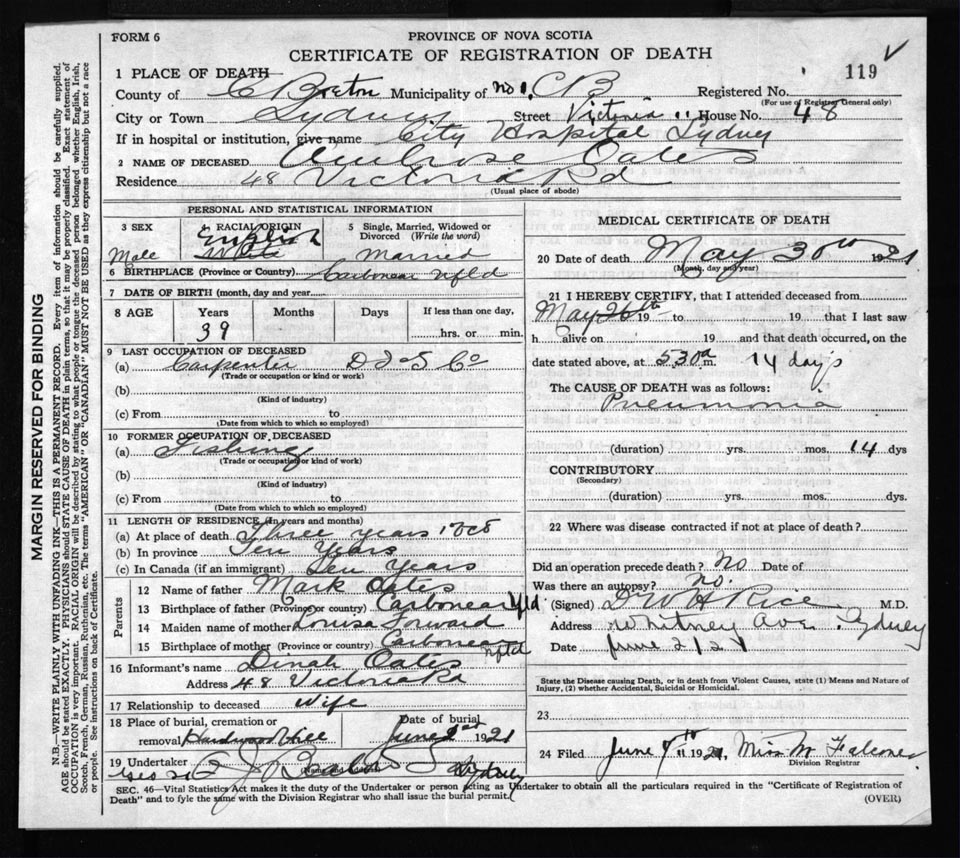 FORM 6
PROVINCE OF NOVA SCOTIA
CERTIFICATE OF REGISTRATION OF DEATH
119
1 PLACE OF DEATH
County of C Breton Municipality of No 1, CB Registered No.
(For use of Registrar General only)
City or Town Sydney Street Victoria " House No. 48
If in hospital or institution, give name City Hospital Sydney
2 NAME OF DECEASED Ambrose Oates
Residence 48 Victoria Rd
(Usual place of abode)
PERSONAL AND STATISTICAL INFORMATION
3 SEX 4 RACIAL ORIGIN 5 Single, Married, Widowed or
Divorced (Write the word)
English
Male White Married
6 BIRTHPLACE (Province or Country) Carbonear Nfld
7 DATE OF BIRTH (month, day and year)
8 AGE Years Months Days If less than one day,
39 hrs. or min.
9 LAST OCCUPATION OF DECEASED
(a) Carpenter D I & S Co
(Trade or occupation or kind or work)
(b)
(Kind of industry)
(c) From to
(Date from which to which so employed)
10 FORMER OCCUPATION OF DECEASED
(a) Fishing
(Trade or occupation or kind of work)
(b)
(Kind of industry)
(c) From to
(Date from which to which so employed)
11 LENGTH OF RESIDENCE (In years and months)
(a) At place of death Three years
(b) In province Ten Years
(c) In Canada (if an immigrant) Ten years
Parents
12 Name of father Mark Oates
13 Birthplace of father (Province or country) Carbonear Nfld
14 Maiden name of mother Louisa Forward
15 Birthplace of mother (Province or country) Carbonear Nfld
16 Informant's name Dinah Oates
Address 48 Victoria Rd
17 Relationship to deceased Wife
18 Place of burial, cremation or Date of burial
removal Hardwood Hill June 1921
19 Undertaker Sydney
MEDICAL CERTIFICATE OF DEATH
20 DATE OF DEATH May 30th 1921
(Month, day and year)
21 I HEREBY CERTIFY, that I attended deceased from
May 26th 19 to 19 that I last saw
h alive on 19 and that death occurred, on the
date stated above, at 5.30 a m. 14 days
The CAUSE OF DEATH was as follows:
Pneumonia
(duration) yrs. mos. 14 dys
CONTRIBUTORY
(Secondary)
(duration) yrs. mos. dys.
22 Where was disease contracted if not at place of death?
Did an operation precede death? No Date of
Was there an autopsy? No.
(Signed) D W H Rice M.D.
Address Whitney Ave. Sydney
Date June 2/21
State the Disease causing Death, or in death from Violent Causes, state (1) Means and Nature of
Injury, (2) whether Accidental, Suicidal or Homicidal.
23
24 Filed June 7th 1921, Miss M Falconer
Division Registrar
SEC. 46—Vital Statistics Act makes it the duty of the Undertaker or person acting as Undertaker to obtain all the particulars required in the "Certificate of Registration of
Death" and to fyle the same with the Division Registrar who shall issue the burial permit.
(OVER)
MARGIN RESERVED FOR BINDING
N.B.—WRITE PLAINLY WITH UNFADING INK—THIS IS A PERMANENT RECORD. Every item of information should be carefully supplied.
AGE should be stated EXACTLY. PHYSICIANS should STATE CAUSE OF DEATH in plain terms, so that it may be properly classified. Exact statement of
OCCUPATION is very important. RACIAL ORIGIN will be described by stating to what people or tongue the deceased person belonged whether English, Irish,
Scotch, French, German, Russian, Ruthenian, etc. The terms "AMERICAN" OR "CANADIAN" MUST NOT BE USED as they express citizenship but not a race
or people. See instructions on back of Certificate.